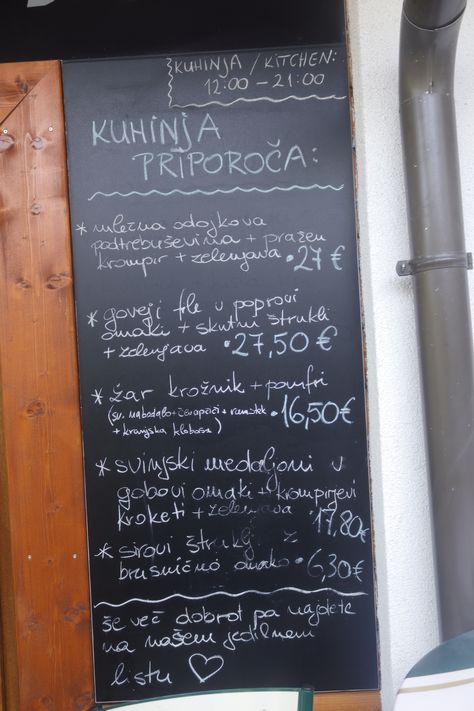 KUHINJA / KITCHEN:
12:00 – 21:00
KUHINJA
PRIPOROČA:
* mlečna odojkova
podtrebuševina + pražen
krompir + zelenjava • 27 €
* goveji file v poprovi
omaki + skutni štruklji
+ zelenjava • 27,50 €
* žar krožnik + pomfri
(sv. nabodalo + čevapčiči + ramstek • 16,50 €
+ kranjska klobasa)
* svinjski medaljoni v
gobovi omaki + krompirjevi
kroketi + zelenjava 17,80 €
* sirovi štruklji z
brusnično omako • 6,30 €
še več dobrot pa najdete
na našem jedilnem
listu ♡